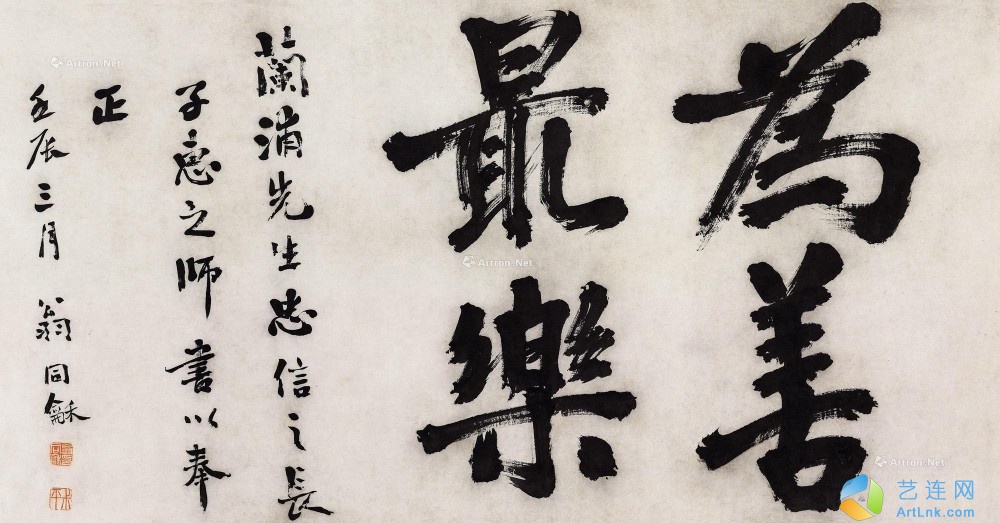 為善
最樂
蘭浦先生忠信之長
子惠之師書以奉
正
壬辰三月 翁同龢
Artron.Net
Artron.Net
Artron.Net
艺连网
ArtLnk.com